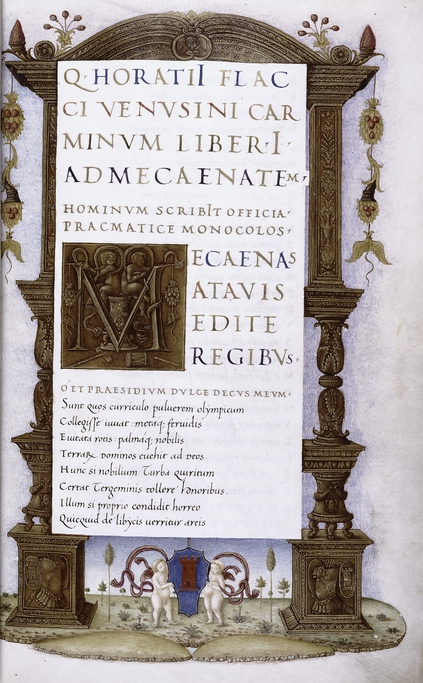 Q · HORATII FLAC
CI VENUSINI CAR
MINVM LIBER · I ·
AD MECAENATEM ·
HOMINVM SCRIBIT OFFICIA ·
PRACMATICE MONOCOLOS ·
MECAENAS
ATAVIS
EDITE
REGIBVS ·
O ET PRAESIDIVM DVLCE DECVS MEVM ·
Sunt quos curriculo puluerem olympicum
Collegisse iuuat : metaq; feruidis
Euitata rotis : palmaq; nobilis
Terraꝝ dominos euehit ad deos .
Hunc si nobilium Turba quiritum
Certat Tergeminis tollere honoribus .
Illum si proprio condidit horreo
Quicquid de libycis verritur areis